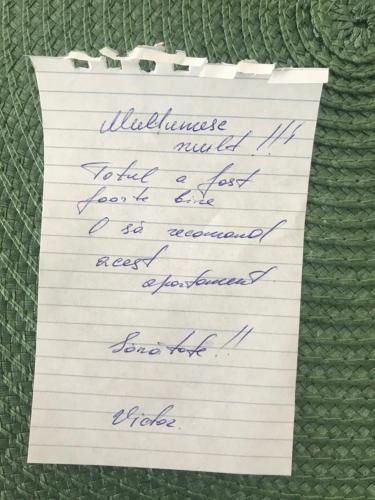 Mulțumesc
mult!!!
Totul a fost
foarte bine
O să recomand
acest
apartament
Sănătate!!
Victor.